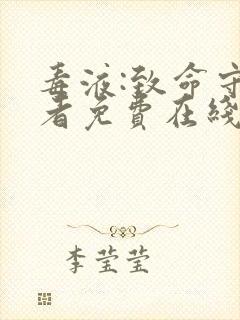 毒液:致命守
者免費在綫
李莹莹